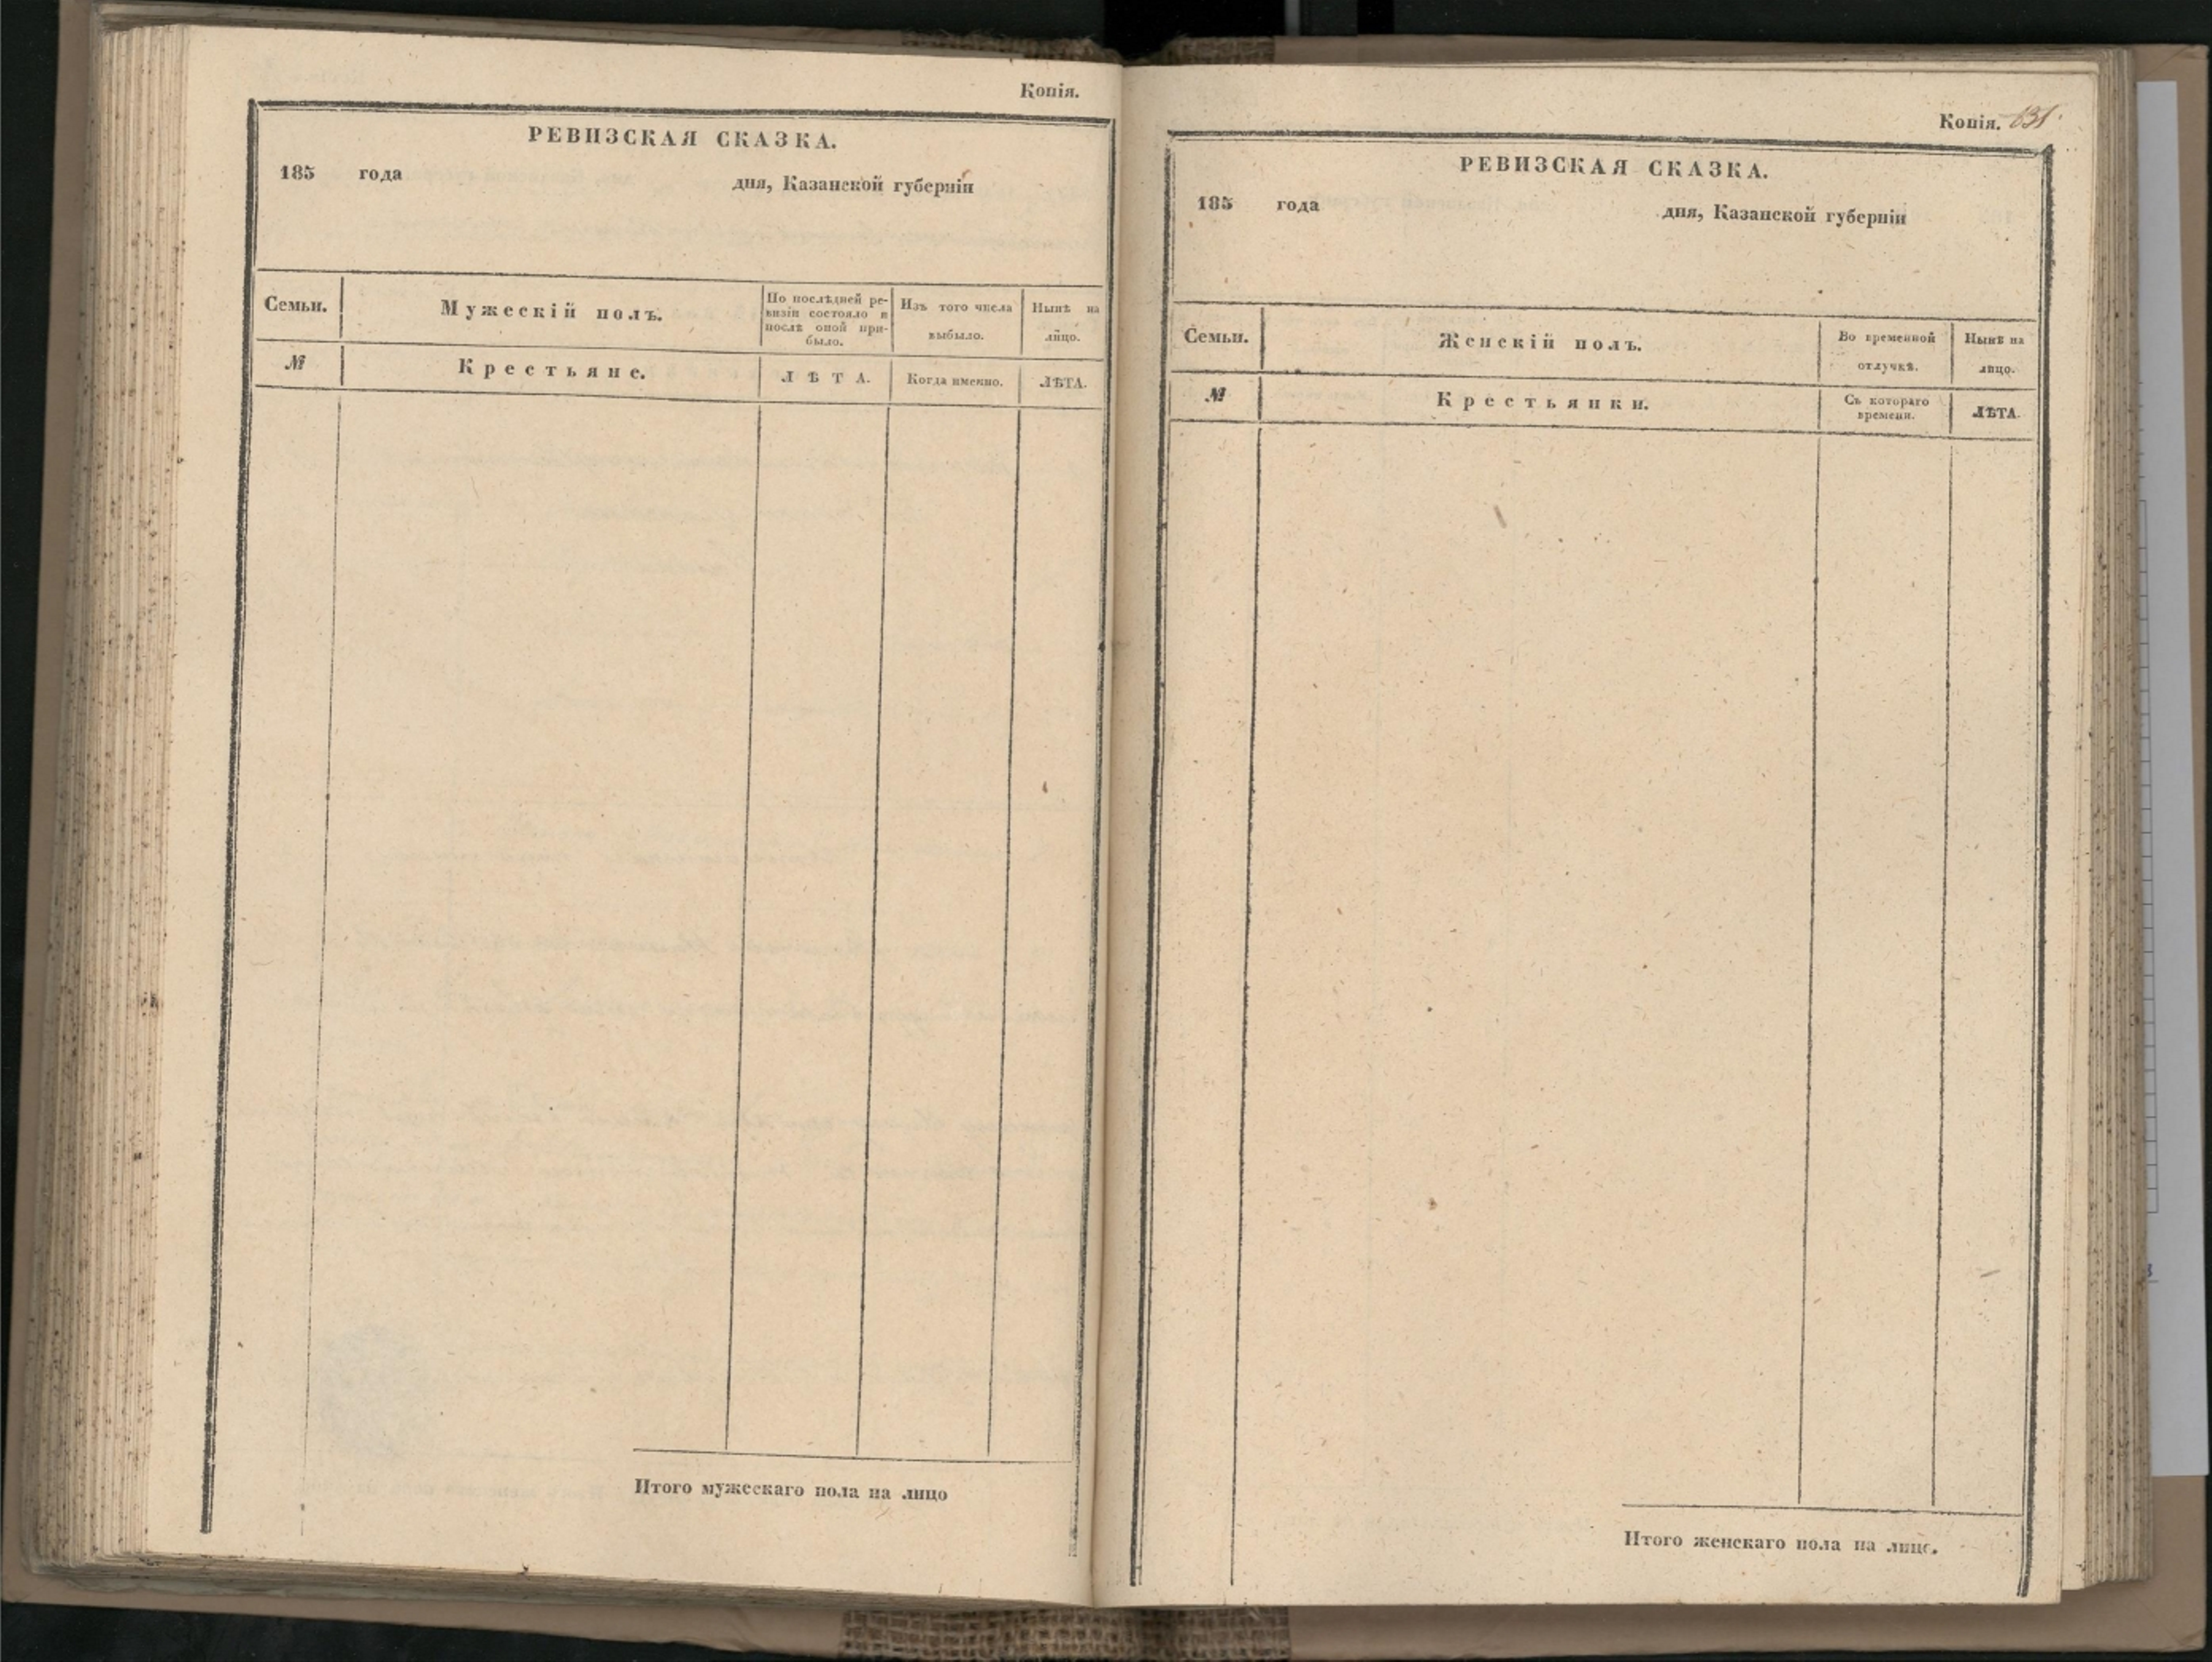 Копія.
РЕВИЗСКАЯ СКАЗКА.
185 года дня, Казанской губерніи
Семьи.
Мужескій полъ.
По послѣдней ре-
визіи состояло и
послѣ оной при-
было.
Изъ того числа
выбыло.
Нынѣ на
лицо.
№
Крестьяне.
ЛѢТА.
Когда именно.
ЛѢТА.
Итого мужескаго пола на лицо
Копія. 631.
РЕВИЗСКАЯ СКАЗКА.
185 года дня, Казанской губерніи
Семьи.
Женскій полъ.
Во временной
отлучкѣ.
Нынѣ на
лицо.
№
Крестьянки.
Съ котораго
времени.
ЛѢТА.
Итого женскаго пола на лицо.